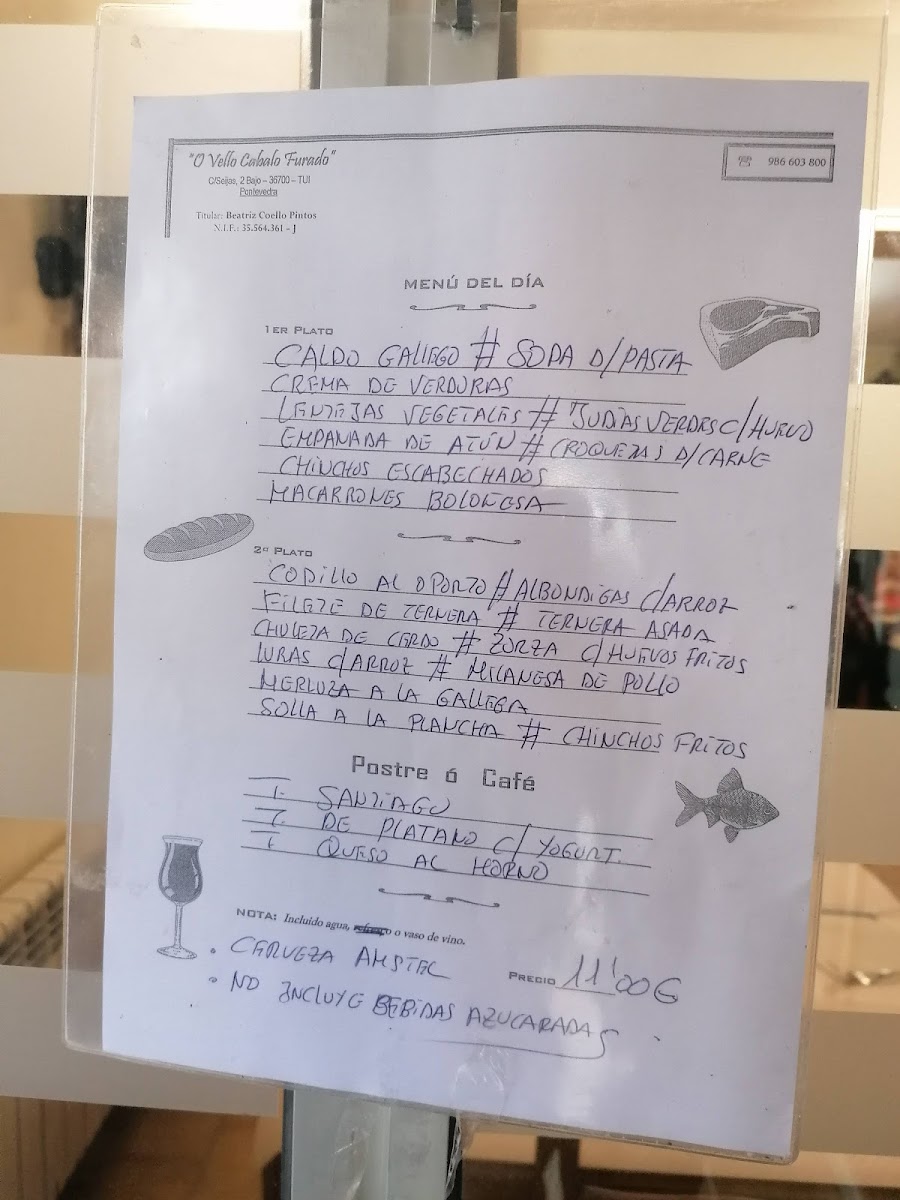 "O Vello Cabalo Furado"
C/Seijas, 2 Bajo – 36700 – TUI
Pontevedra
Titular: Beatriz Coello Pintos
N.I.F.: 35.564.361 - J
☏ 986 603 800
MENÚ DEL DÍA
1ER PLATO
CALDO GALLEGO # SOPA D/PASTA
CREMA DE VERDURAS
LENTEJAS VEGETALES # JUDÍAS VERDES C/HUEVO
EMPANADA DE ATÚN # CROQUETAS D/CARNE
CHINCHOS ESCABECHADOS
MACARRONES BOLOÑESA
2º PLATO
CODILLO AL OPORTO # ALBONDIGAS C/ARROZ
FILETE DE TERNERA # TERNERA ASADA
CHULETA DE CERDO # ZORZA C/HUEVOS FRITOS
LURAS C/ARROZ # MILANESA DE POLLO
MERLUZA A LA GALLEGA
SOLLA A LA PLANCHA # CHINCHOS FRITOS
Postre ó Café
T. SANTIAGO
T. DE PLATANO C/ YOGURT.
T. QUESO AL HORNO
NOTA: Incluido agua, refresco o vaso de vino.
• CERVEZA AMSTEL
PRECIO 11'00€
• NO INCLUYE BEBIDAS AZUCARADAS.